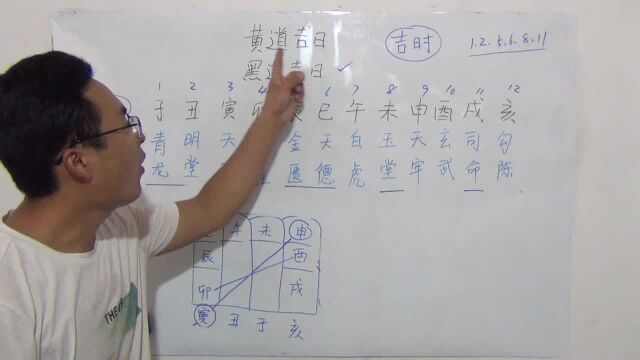 黄道吉日 吉时 1.2.5.6.8.11
黑道吉日
1 2 3 4 6 7 8 9 10 11 12
子 丑 寅 卯 辰 巳 午 未 申 酉 戌 亥
青 明 天 金 天 白 玉 天 玄 司 勾
龙 堂 匮 德 虎 堂 牢 武 命 陈
午 未 申
辰 酉
卯 戌
寅 丑 子 亥